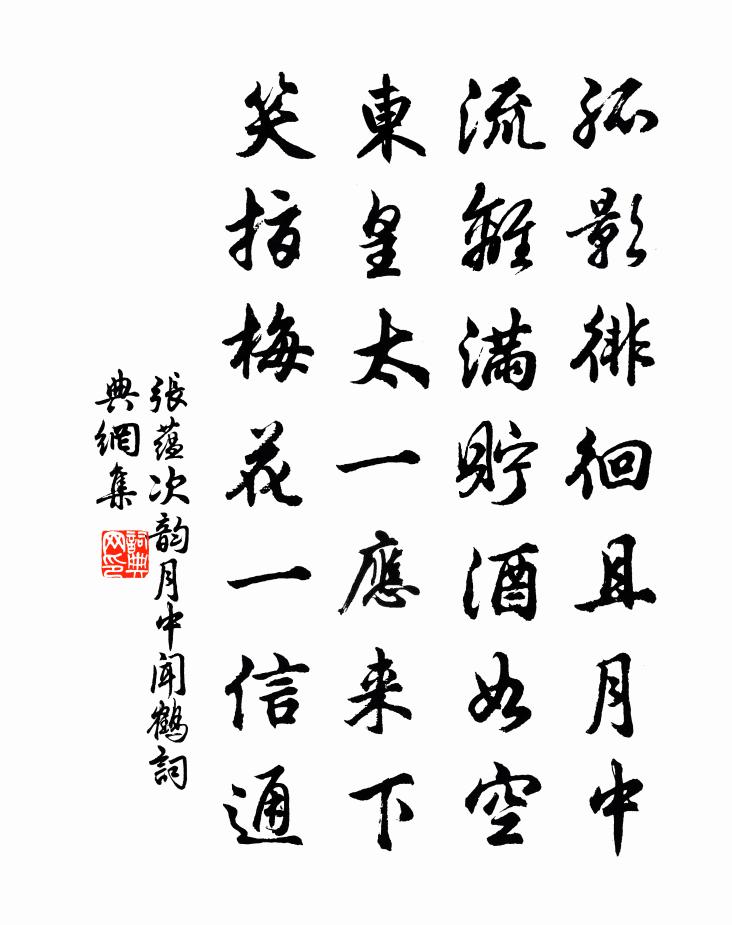 孤影徘徊且月中
流離滿貯酒如空
東皇太一應来下
笑指梅花一信通
張蘊次韵月中聞鶴詞
典網集
詞典网印